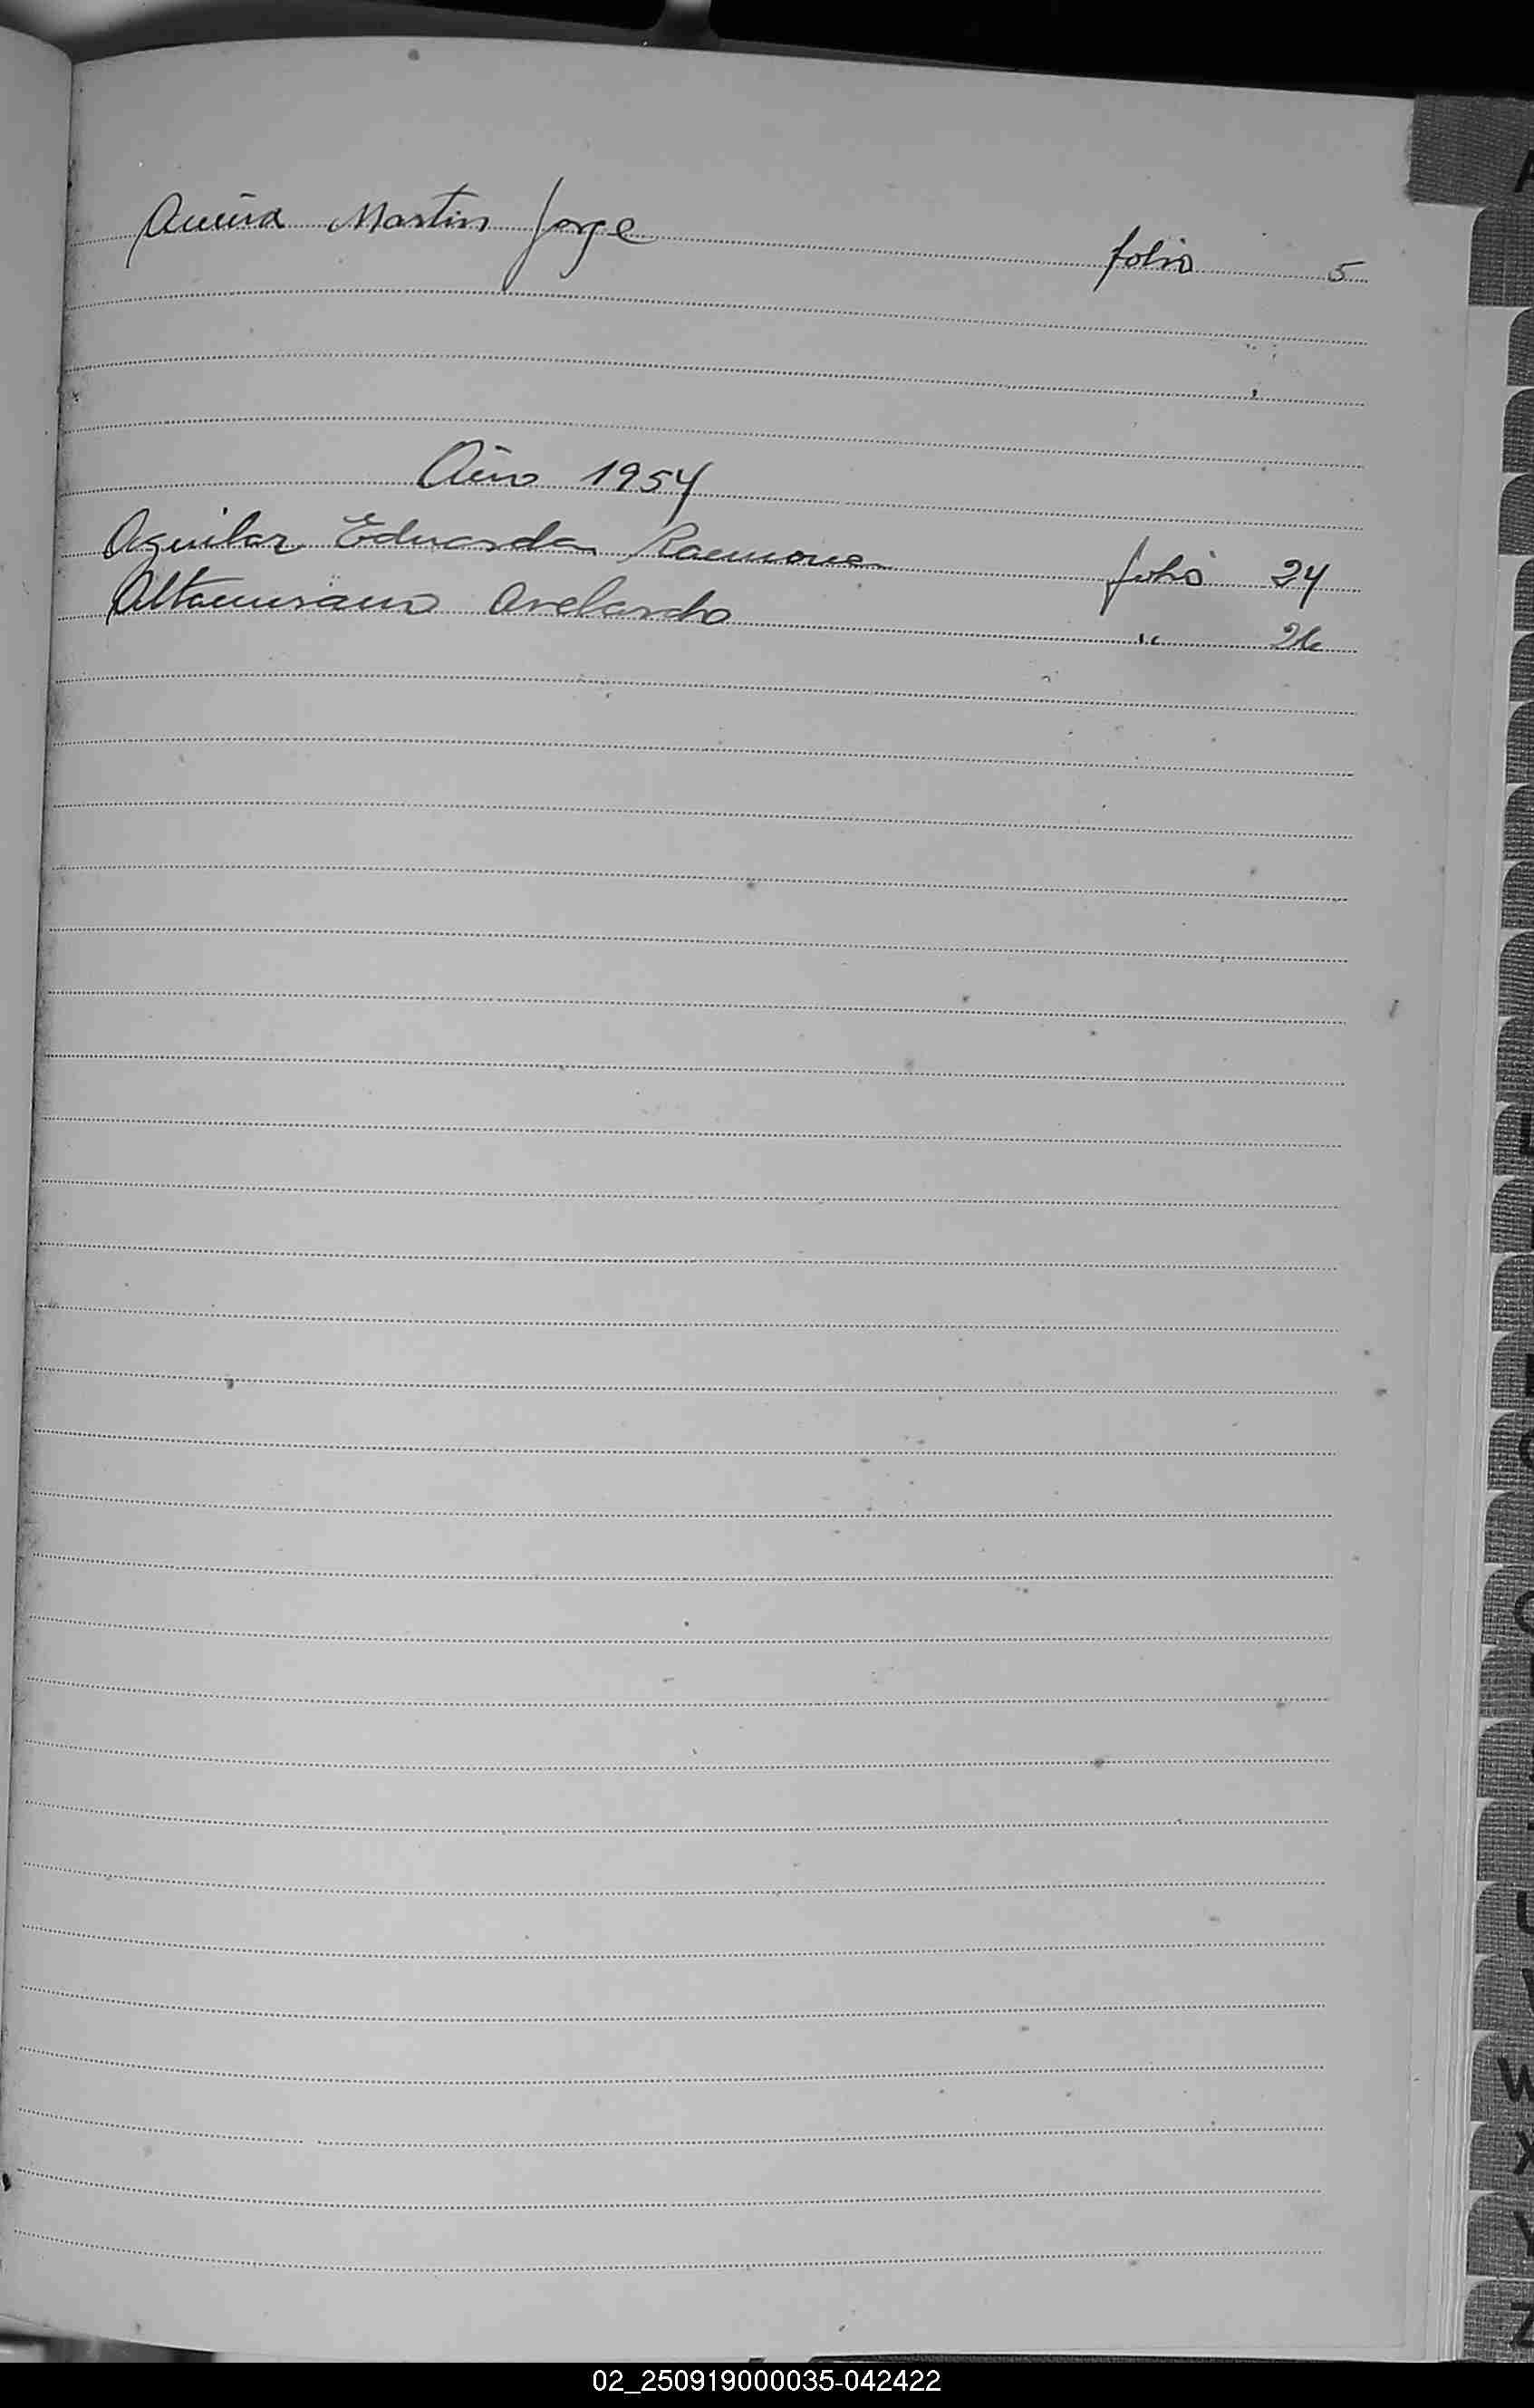 Acuña Martin Jorge folio 5
Año 1954
Aguilar Eduarda Ramona folio 24
Altamirano Avelardo " 26
A
L
W
X
Y
Z
02_250919000035-042422